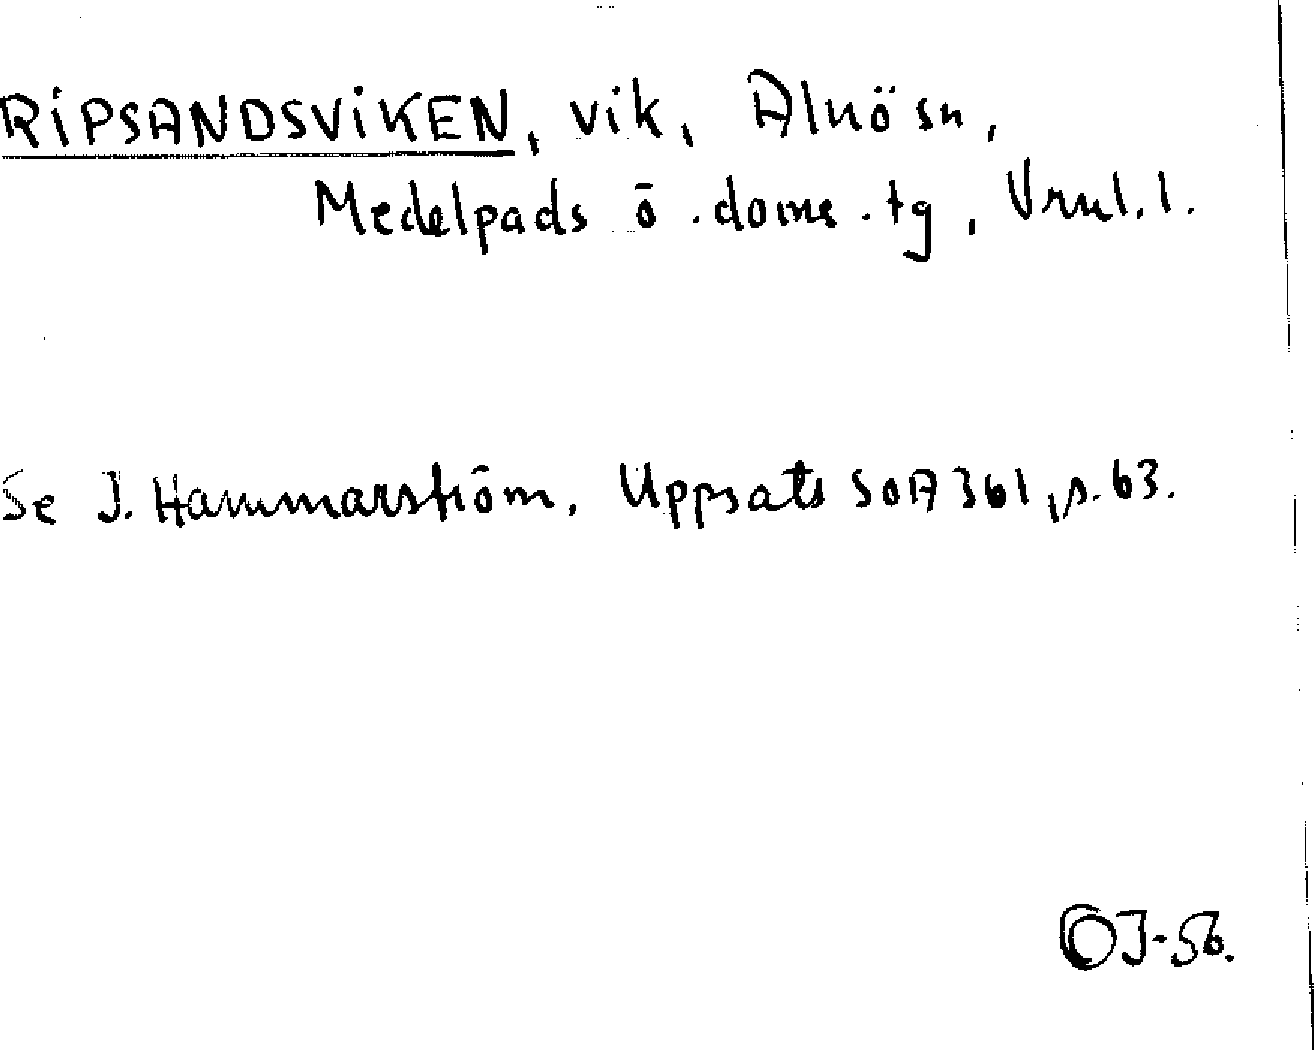 RIPSANDSVIKEN, vik, Alnö sn,
Medelpads ö. doms. tg, Vrnl. l.
Se J. Hammarström, Uppsats SOA 361, s. 63.
OJ-56.